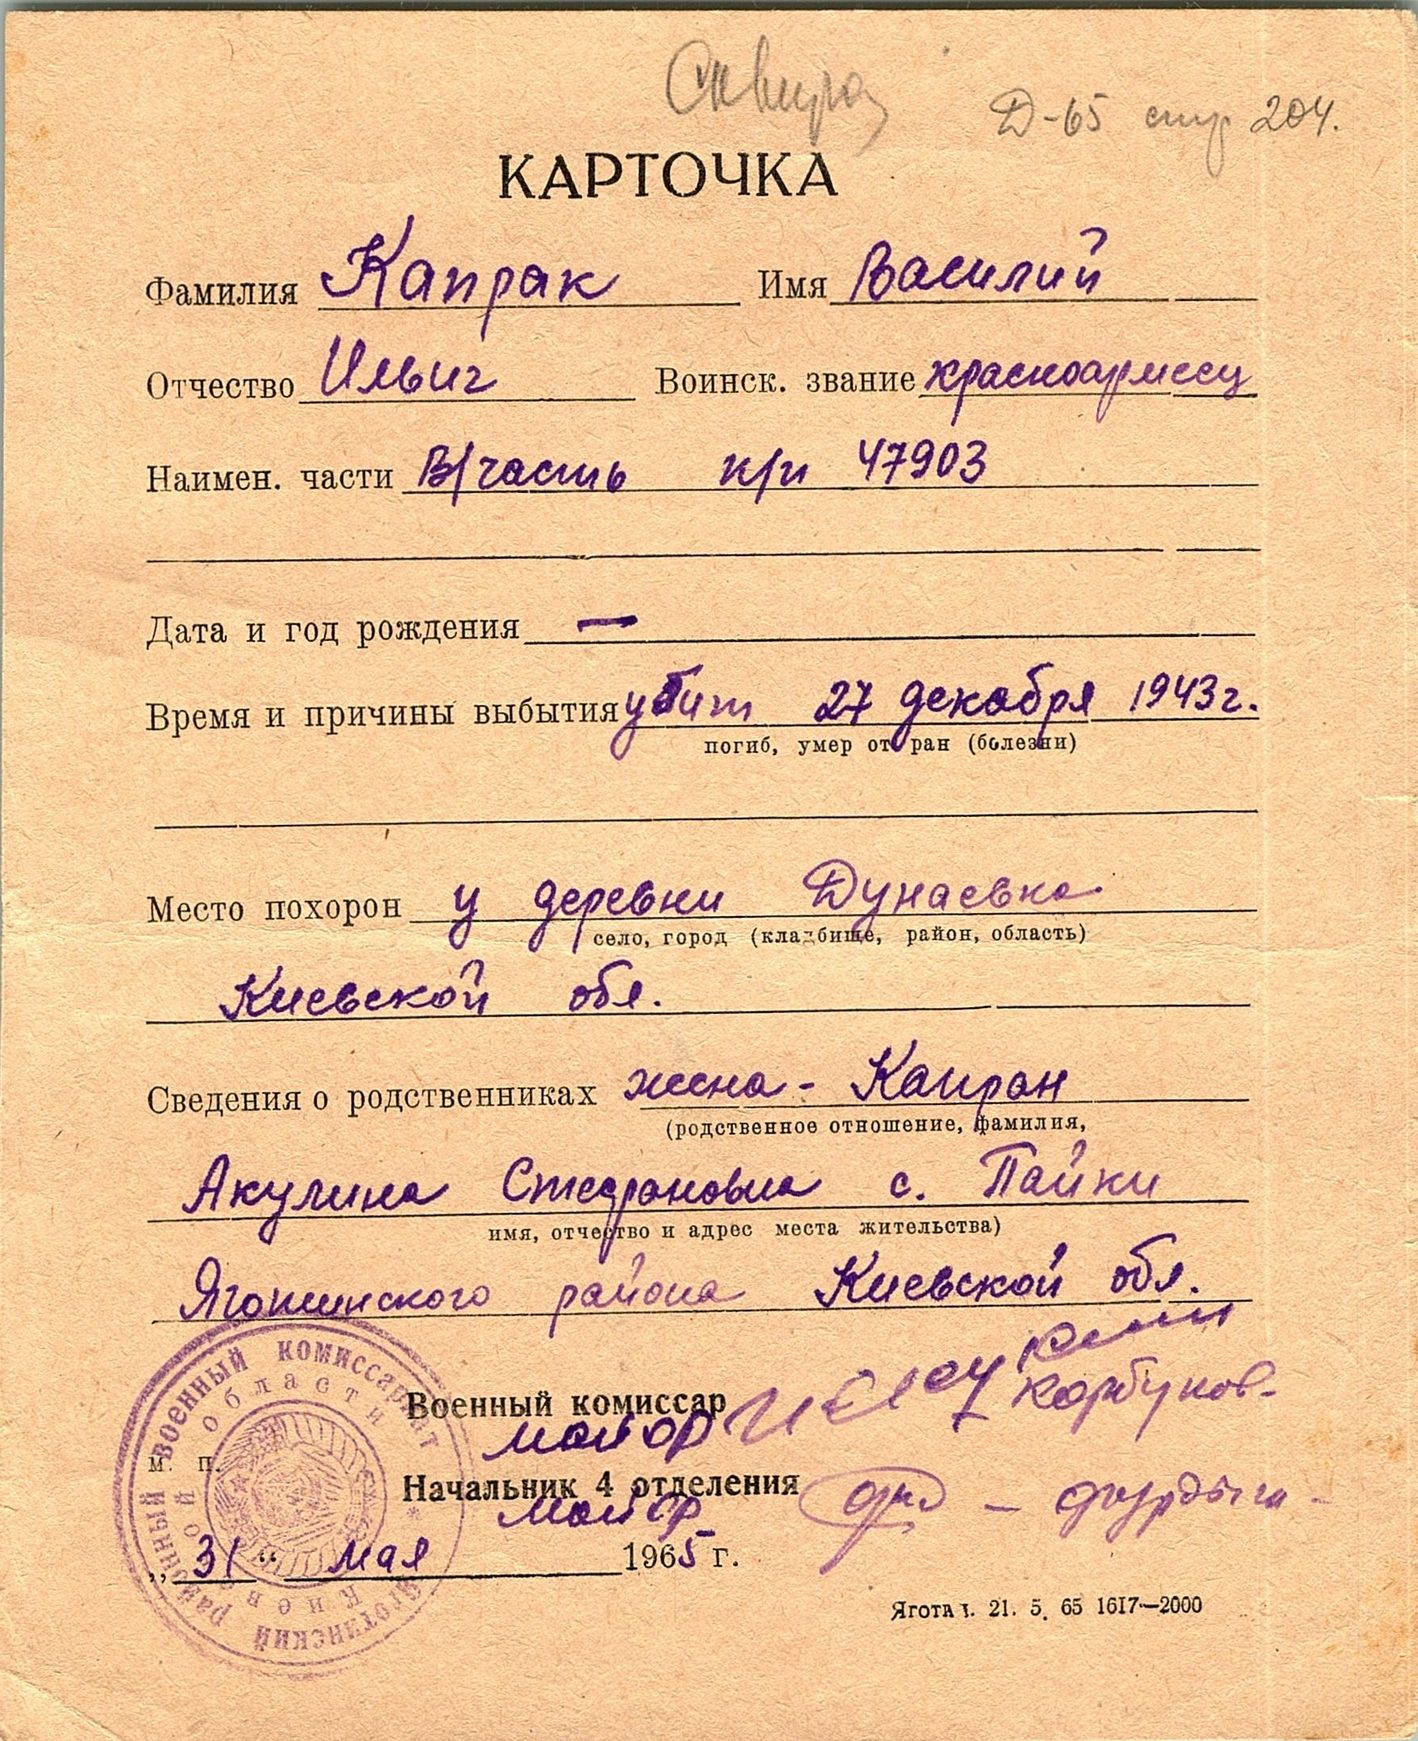 Сквира
Д-65 стр 204.
КАРТОЧКА
Фамилия Капрак Имя Василий
Отчество Ильич Воинск. звание красноармеец
Наимен. части В/часть п/п 47903
Дата и год рождения —
Время и причины выбытия убит 27 декабря 1943 г.
погиб, умер от ран (болезни)
Место похорон у деревни Дунаевка
село, город (кладбище, район, область)
Киевской обл.
Сведения о родственниках жена - Капран
(родственное отношение, фамилия,
Акулина Стефановна с. Пайки
имя, отчество и адрес места жительства)
Яготинского района Киевской обл.
Военный комиссар
майор
м. п.
Начальник 4 отделения
майор
„31“ мая 1965 г.
Яготин. 21. 5. 65 1617—2000
Яготинский районный военный комиссариат
Киевской области